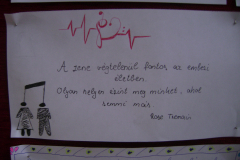 A zene végtelenül fontos az emberi
életben.
Olyan helyen érint meg minket, ahol
semmi más.
Rose Tremain